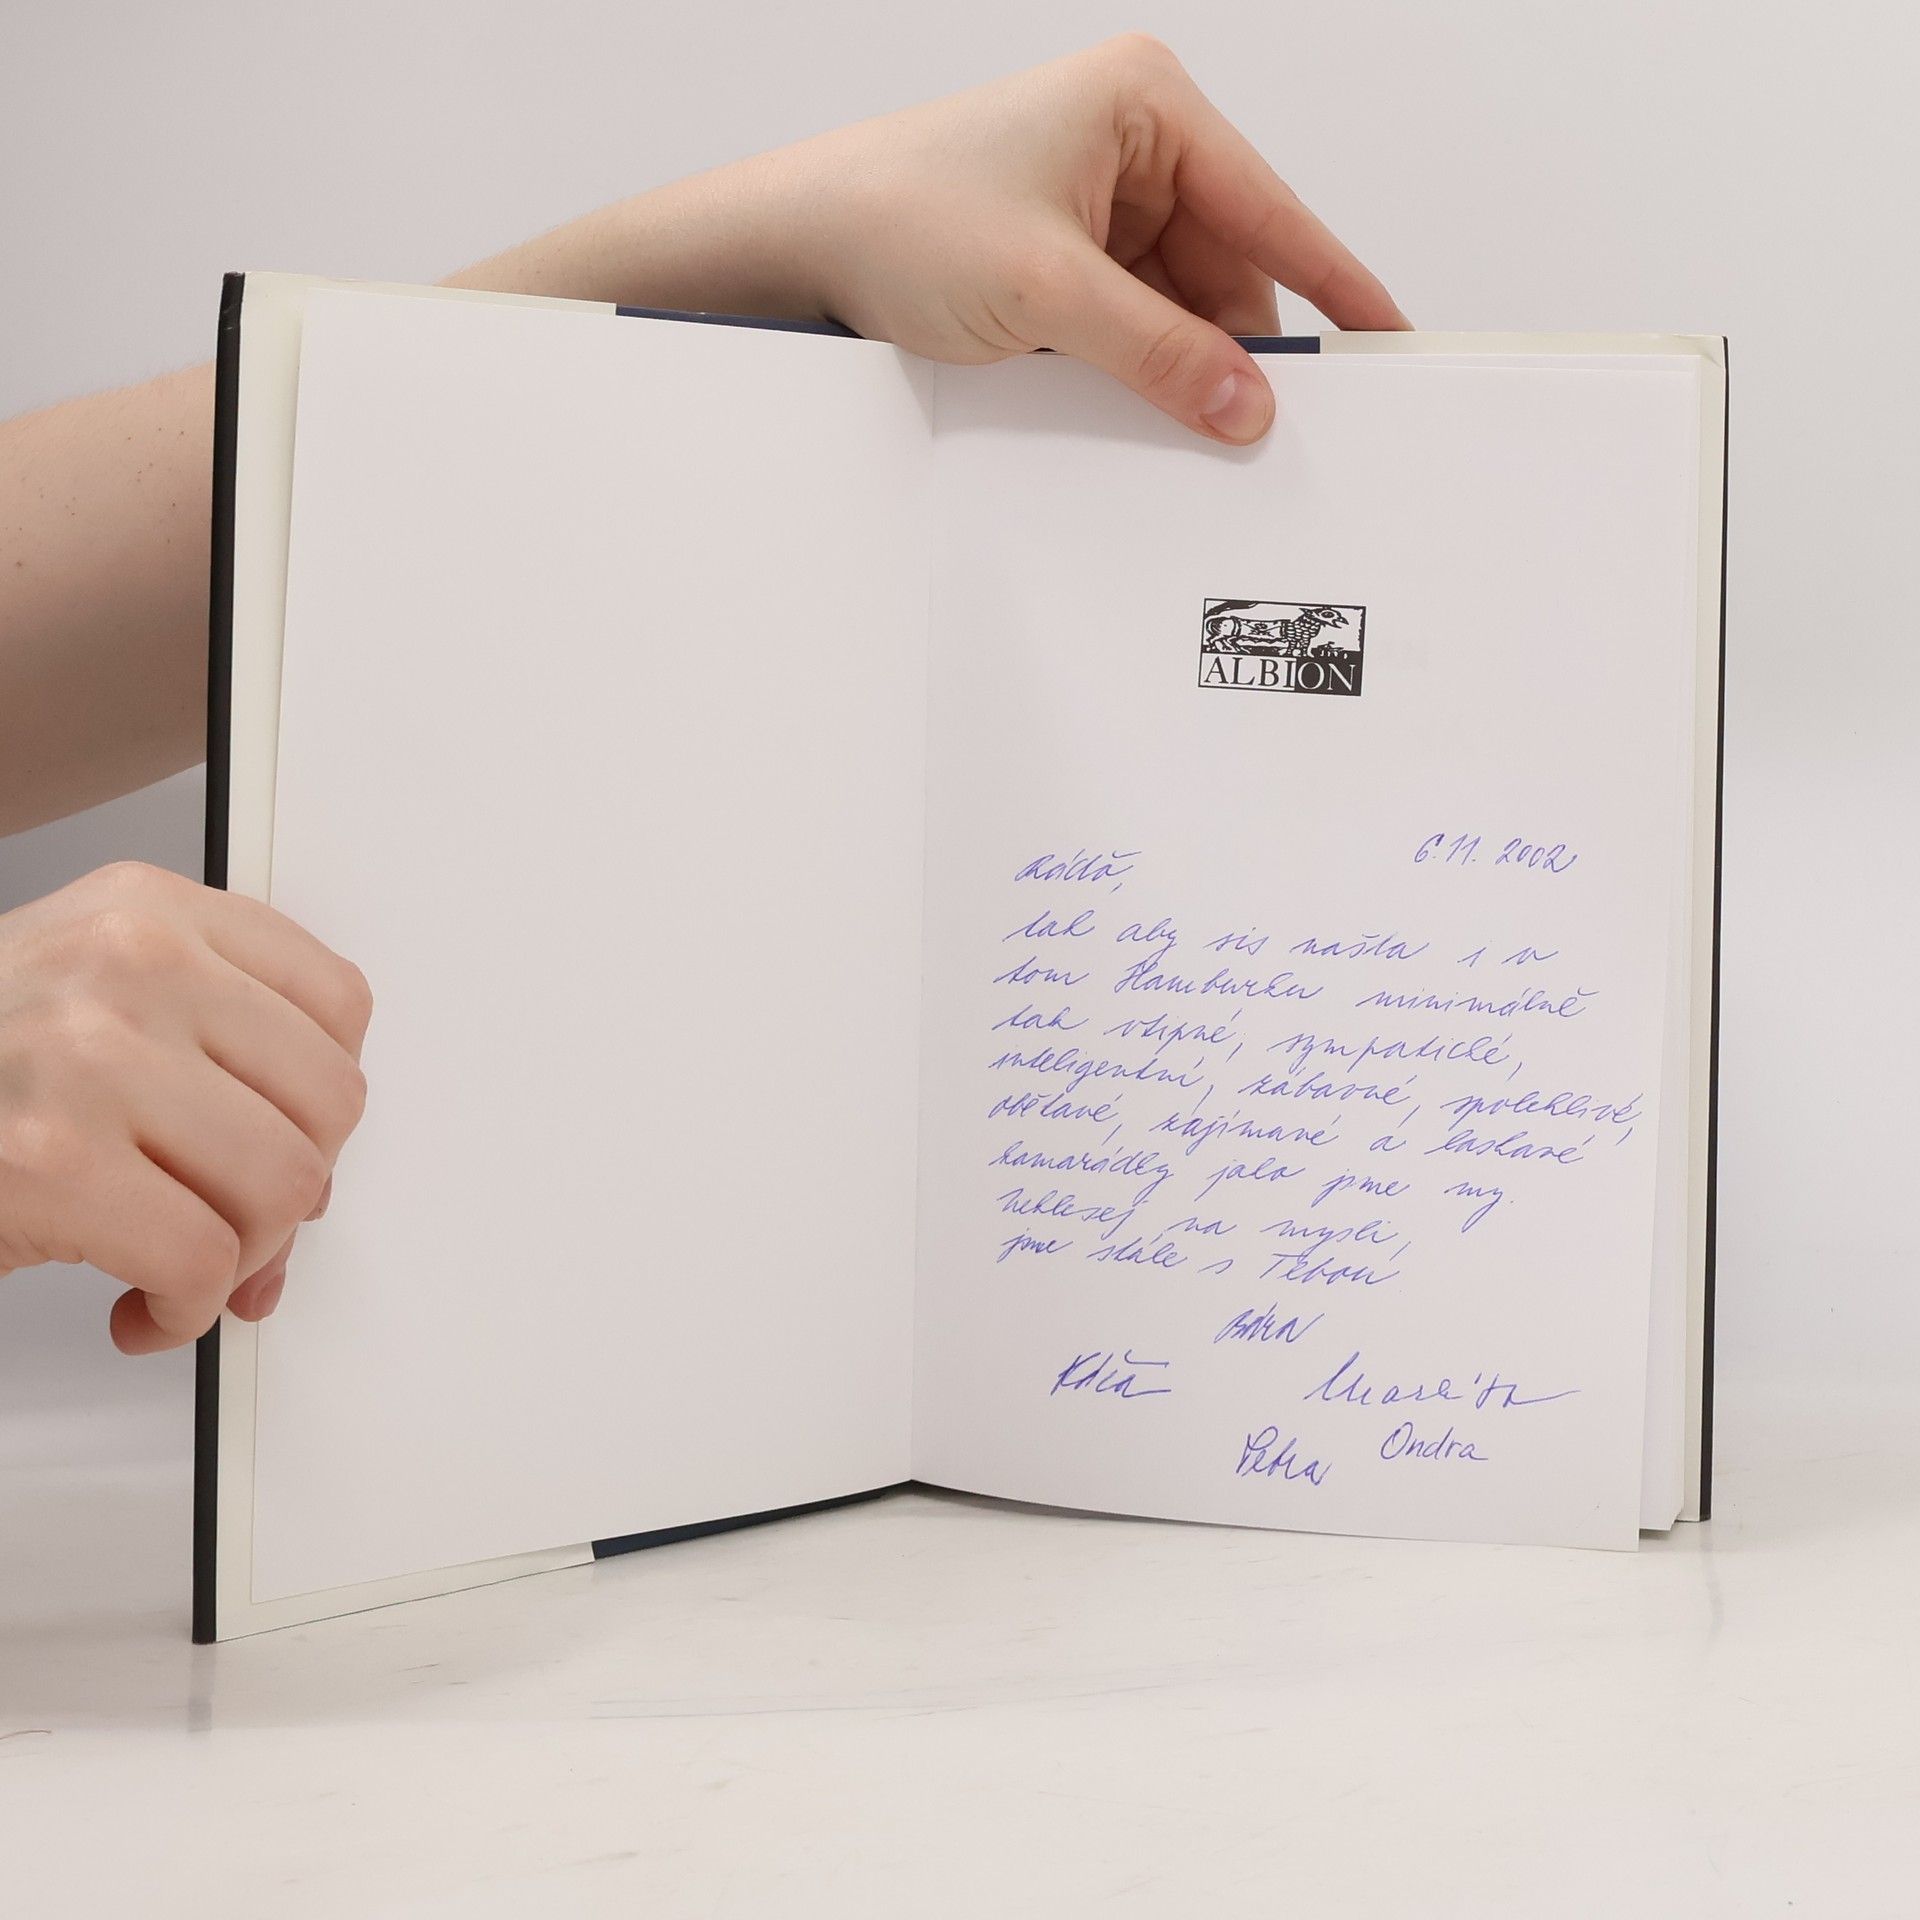 ALBION
6.11.2002
Ráďo,
tak aby sis našla i v
tom Hamburku minimálně
tak vtipné, sympatické,
inteligentní, zábavné, spolehlivé,
obětavé, zajímavé a laskavé
kamarádky jako jsme my.
Neklesej na mysli,
jsme stále s Tebou
Bára
Káča
Markéta
Petra
Ondra